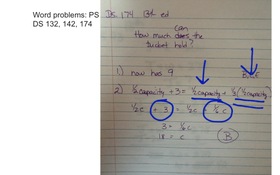 Word problems: PS
DS 132, 142, 174
DS 174 13th ed
How much can does the
bucket hold?
1) now has 9
2) ½ capacity + 3 = ½ capacity + ⅓(½ capacity)
½c + 3 = ½c + ⅙c
3 = ⅙c
18 = c
B